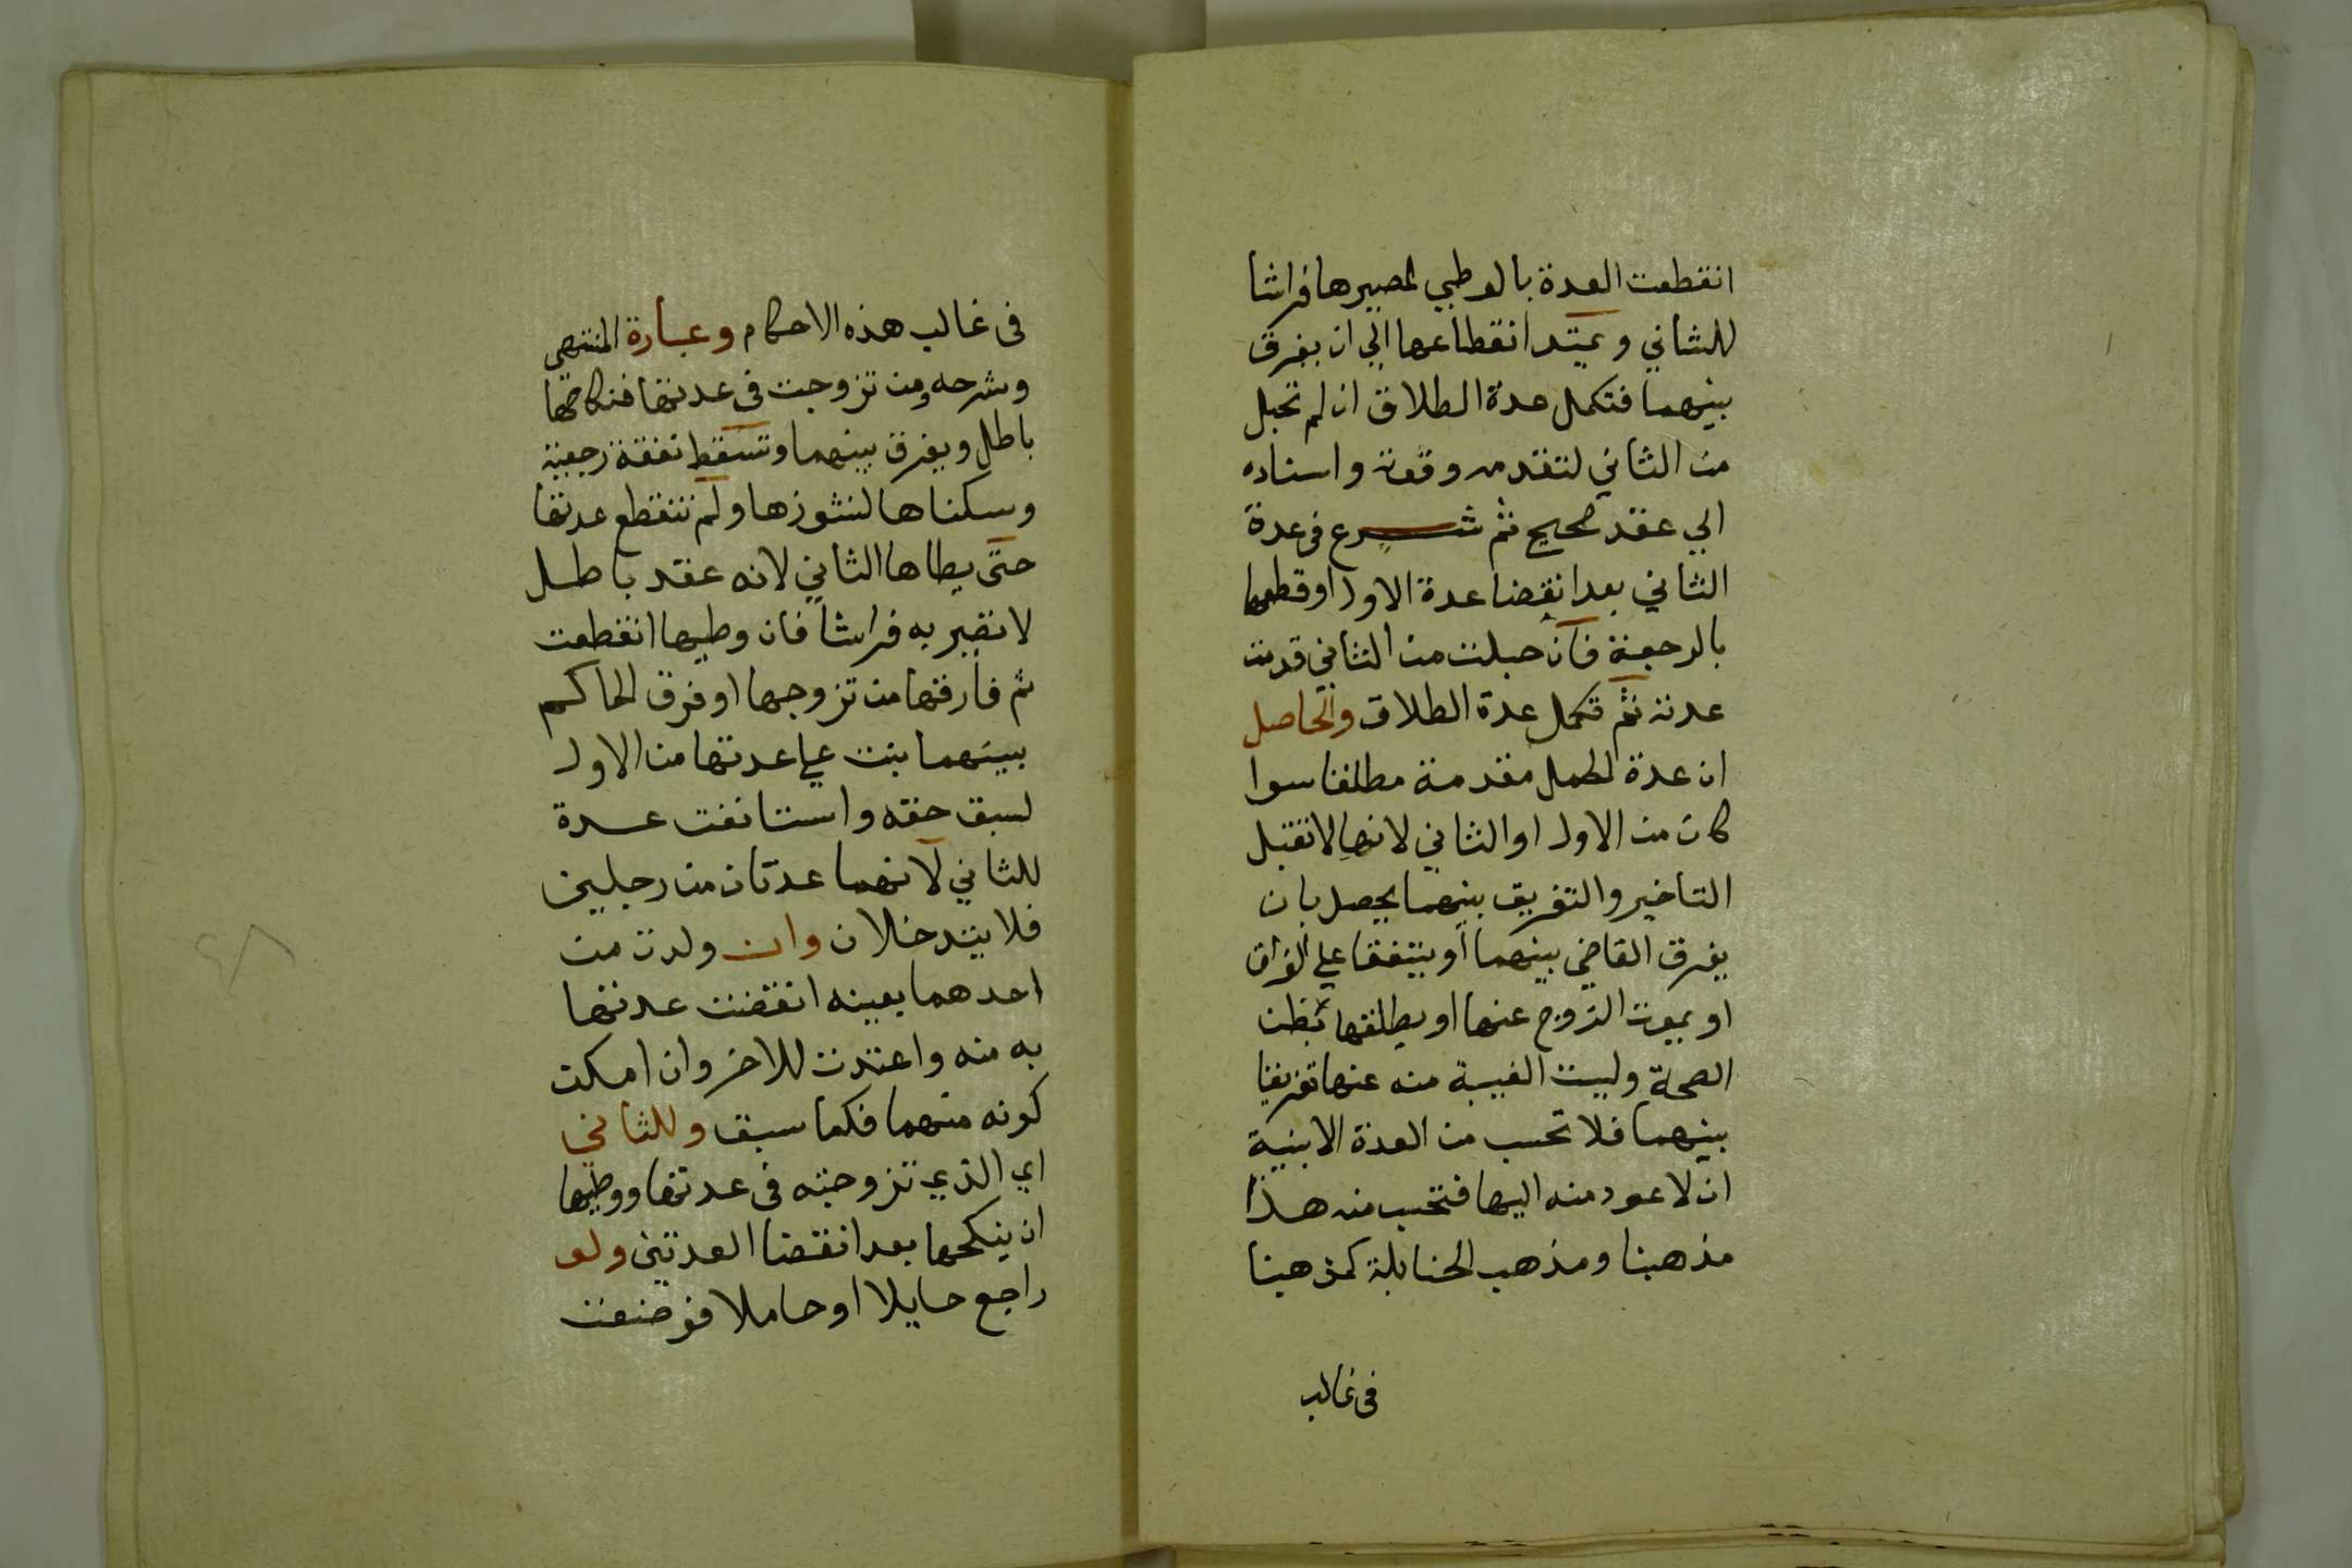 انقطعت العدة بالوطي لمصيرها فراشا
للثاني ويمتد انقطاعها الي ان يفرق
بينهما فتكمل عدة الطلاق ان لم تحبل
من الثاني لتقدمه وقوته واستناده
الي عقد صحيح ثم شرع في عدة
الثاني بعد انقضا عدة الاول او قطعها
بالرجعة فان حبلت من الثاني قدمت
عدته ثم تكمل عدة الطلاق والحاصل
ان عدة الحمل مقدمة مطلقا سوا
كان من الاول او الثاني لانها لا تقبل
التاخير والتفريق بينهما يحصل بان
يفرق القاضي بينهما او يتفقا علي الفراق
او يموت الزوج عنها او يطلقها بظن
الصحة وليست الغيبة منه عنها تفريقا
بينهما فلا تحسب من العدة الا بنية
ان لا عود منه اليها فتحسب منه هذا
مذهبنا ومذهب الحنابلة كمذهبنا
في غالب
في غالب هذه الاحكام وعبارة المنتهي
وشرحه ومن تزوجت في عدتها فنكاحها
باطل ويفرق بينهما وتسقط نفقة رجعية
وسكناها لنشوزها ولم تنقطع عدتها
حتي يطاها الثاني لانه عقد باطل
لا تصير به فراشا فان وطيها انقطعت
ثم فارقها من تزوجها او فرق الحاكم
بينهما بنت علي عدتها من الاول
لسبق حقه واستانفت عدة
للثاني لانهما عدتان من رجلين
فلا يتدخلان وان ولدت من
احدهما بعينه انقضت عدتها
به منه واعتدت للاخر وان امكن
كونه منهما فكما سبق وللثاني
اي الذي تزوجته في عدتها ووطيها
ان ينكحها بعد انقضا العدتين ولو
راجع حايلا او حاملا فوضعت
٤٨